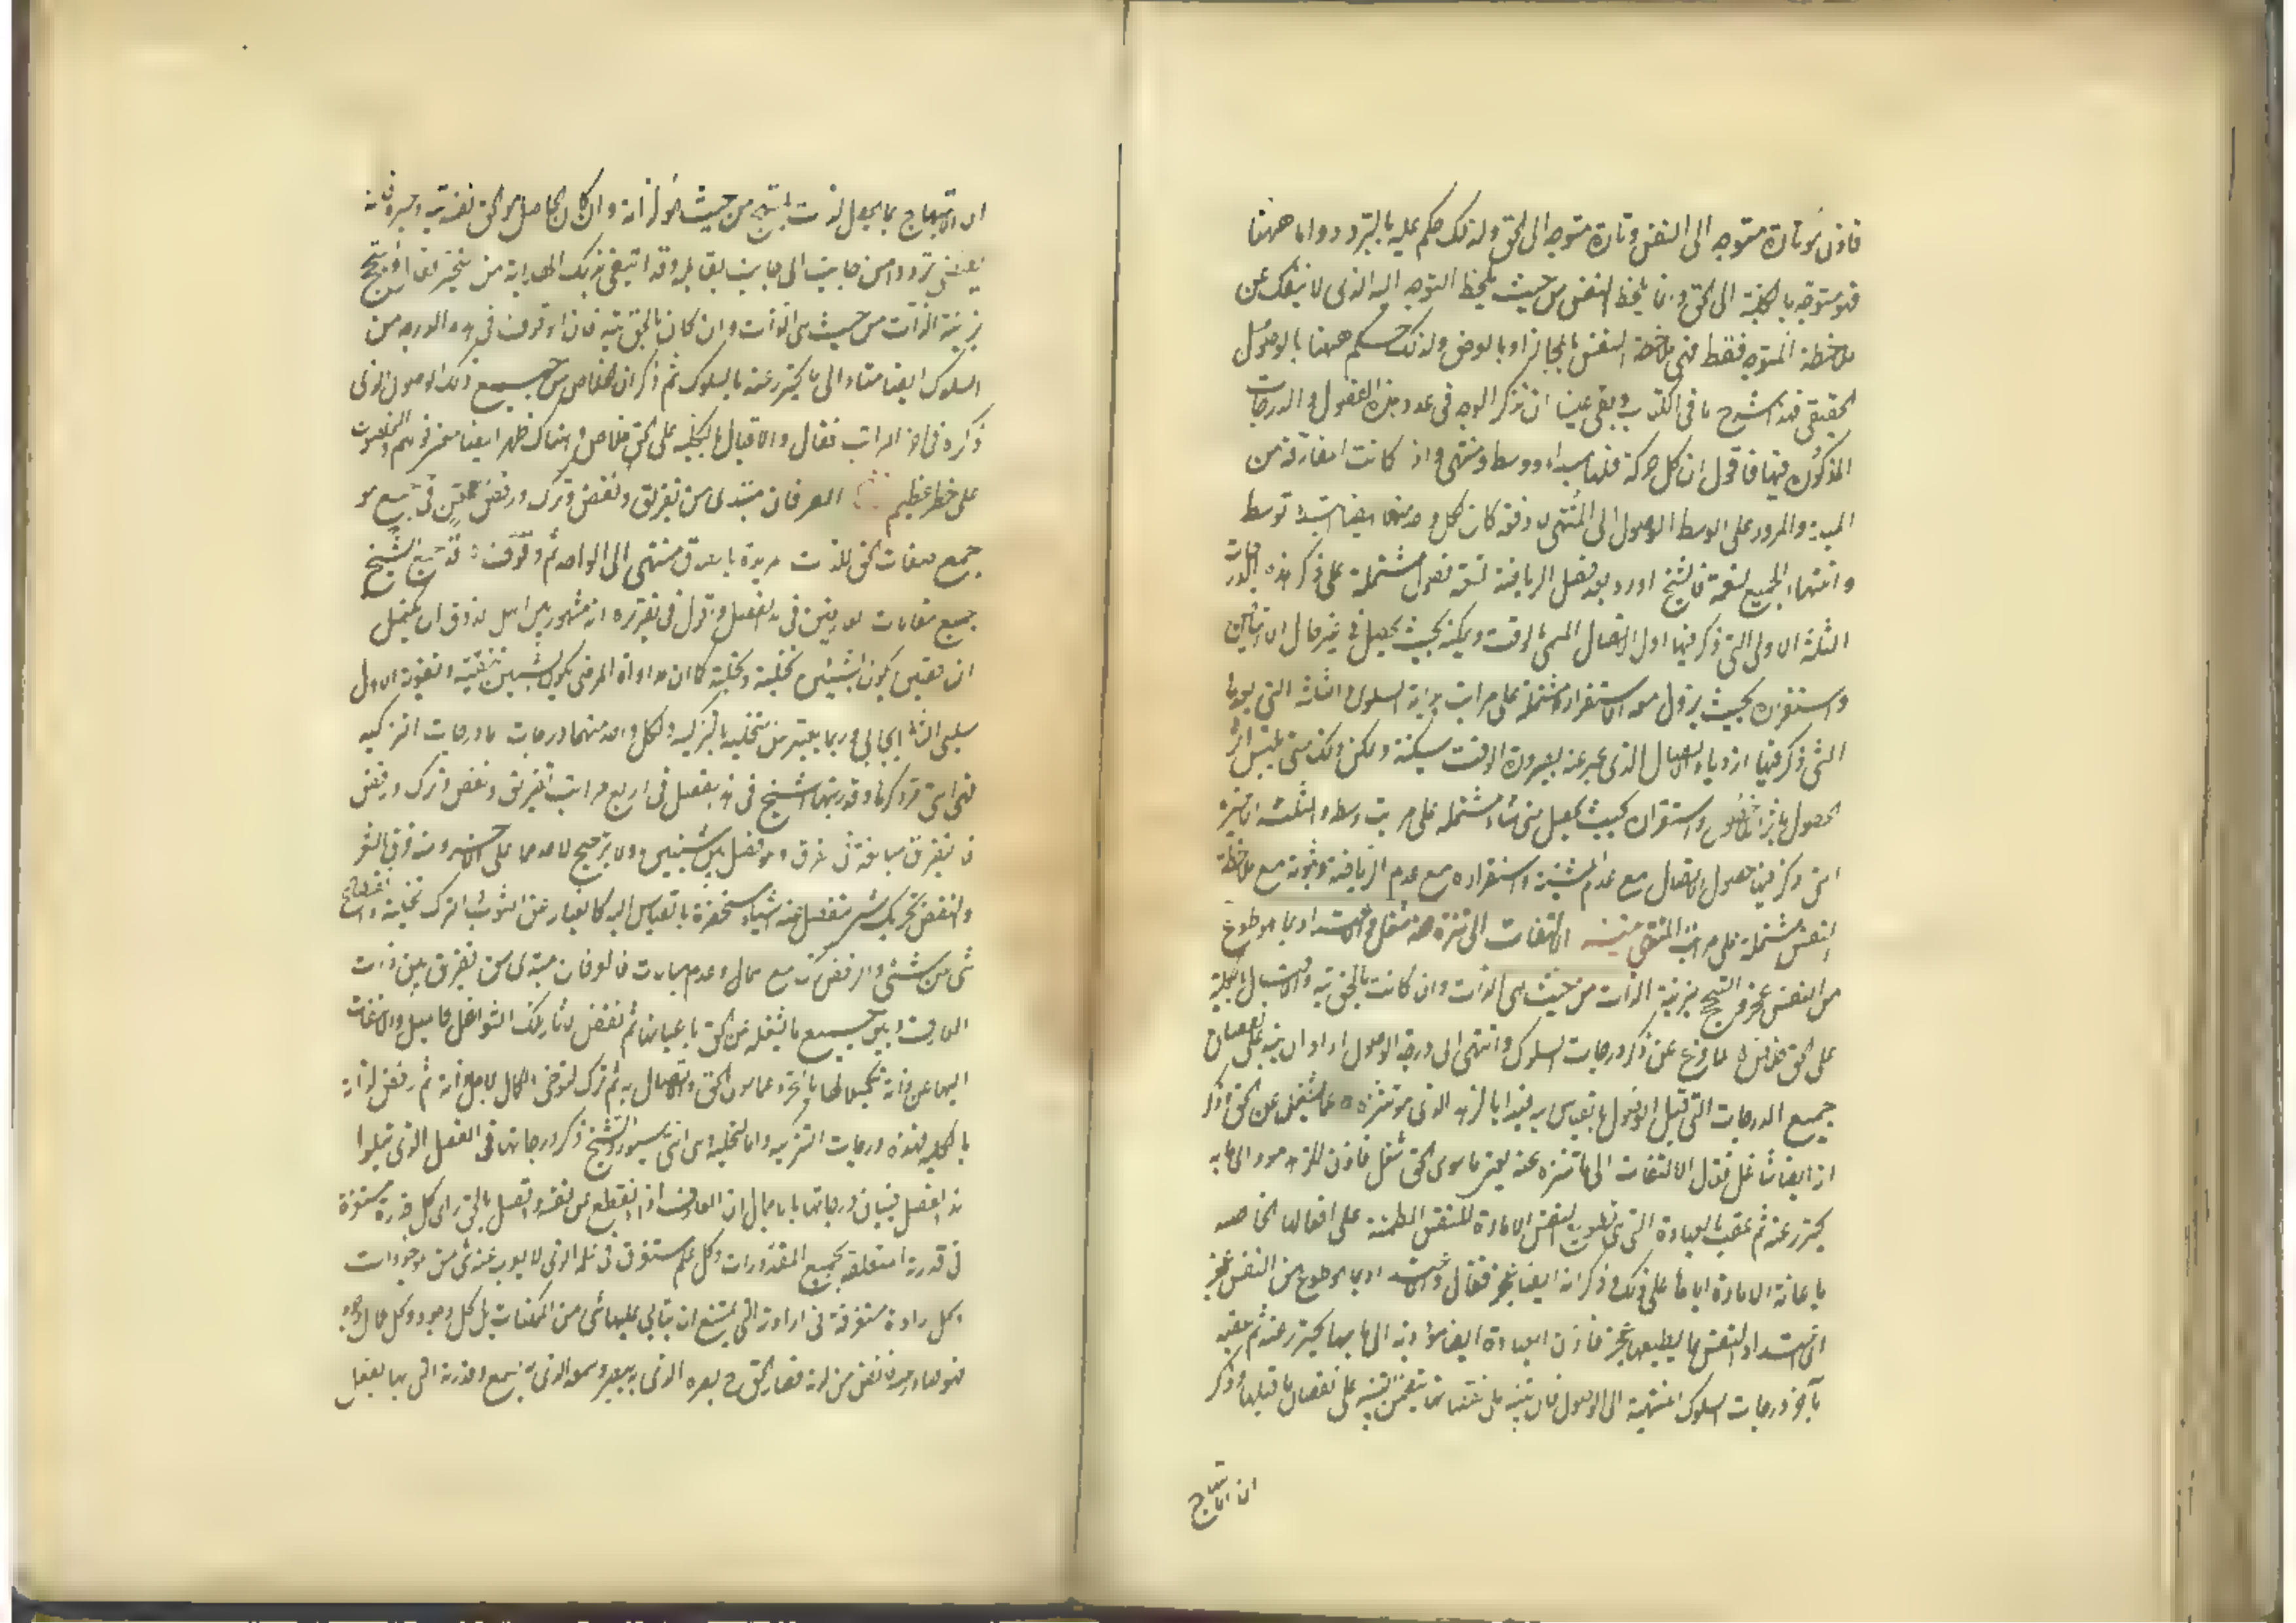 فاذن هو تارة متوجه الى النفس وتارة متوجه الى الحق ولذلك حكم عليه بالتردد واما ههنا
فهو متوجه بالكلية الى الحق وانما يلحظ النفس من حيث يلحظ المتوجه اليه الذى لا ينفك عن
ملاحظة المتوجه فقط فهى ملاحظة النفس بالمجاز او بالعرض ولذلك حكم ههنا بالوصول
الحقيقى فهذا شرح ما فى الكتاب وبقى علينا ان نذكر الوجه فى عدد هذه الفصول والدرجات
المذكورة فيها فاقول ان كل حركة فلها مبداء ووسط ومنتهى واذ كانت المفارقة من
المبدء والمرور على الوسط والوصول الى المنتهى لا دفعة كان لكل واحد منها ايضا ابتداء وتوسط
وانتهاء والجميع تسعة فالشيخ اورد بعد فصل الرياضة تسعة فصول مشتملة على ذكر هذه الدرجات
الثلثة الاولى التى ذكر فيها اول الاتصال المسمى بالوقت وتمكنه بحيث يحصل فى غير حال الارتياض
واستقراره بحيث يزول معه الاستفزاز مشتملة على مراتب بداية السلوك والثلثة التى بعدها
التى ذكر فيها ازدياد الاتصال الذى عبر عنه بصيرورة الوقت سكينة وتمكن ذلك حتى يلتبس اثر
الحصول باثر اللاحصول واستقراره بحيث يحصل متى شاء مشتملة على مراتب وسطه والثلثة الاخيرة
التى ذكر فيها حصول الاتصال مع عدم المشية واستقراره مع عدم الرياضة وثبوته مع ملاحظة
النفس مشتملة على مراتب المنتهى تنبيه الالتفات الى ما تنزه عنه شغل والاعتداد بما هو طوع
من النفس عجز والتبجح بزينة الذات من حيث هى الذات وان كانت بالحق تيه والاقبال بالكلية
على الحق خلاص لما فرغ عن ذكر درجات السلوك وانتهى الى درجة الوصول اراد ان ينبه على نقصان
جميع الدرجات التى قبل الوصول بالقياس اليه فبدا بالزهد الذى هو تنزه ما عما يشغل عن الحق وذكر
انه ايضا شاغل فقال الالتفات الى ما تنزه عنه يعنى ما سوى الحق شغل فاذن الزهد مود الى ما به
يحترز عنه ثم عقب بالعبادة التى هى تطويع النفس الامارة للنفس المطمئنة على افعالها الخاصة
باعانة الامارة اياها على ذلك وذكر انه ايضا عجز فقال والاعتداد بما هو طوع من النفس عجز
اى اعتداد النفس بما يطيعها عجز فاذن العبادة ايضا مؤدية الى ما بها يحترز عنه ثم عقبه
بآخر درجات السلوك المنتهية الى الوصول فان التنبيه على نقصانها يتضمن التنبيه على نقصان ما قبلها وذكر
ان الابتهاج
ان الابتهاج بما يحصل لذات المبتهج من حيث هو لذاته وان كان الحاصل هو الحق نفسه تيه وحيرة فانه
يقتضى ترددا من جانب الى جانب يقابله وقد ابتغى بذلك الهداية من التحير فقال والتبجح
بزينة الذات من حيث هى الذات وان كان بالحق تيه فاذن الوقوف فى هذه الدرجة من
السلوك ايضا متاد الى ما يحترز عنه بالسلوك ثم ذكر ان الخلاص من جميع ذلك الوصول الذى
ذكره فى آخر المراتب فقال والاقبال بالكلية على الحق خلاص وهناك ظهر ايضا معنى قولهم والمخلصون
على خطر عظيم العرفان مبتدى من تفريق ونفض وترك ورفض ممعن فى جمع هو
جمع صفات الحق للذات المريدة بالصدق منتهى الى الواحد ثم وقوف قد جمع الشيخ
جميع مقامات العارفين فى هذا الفصل واقول فى تقريره انه مشهور بين اهل الذوق ان تكميل
الناقصين يكون بشيئين تخلية وتحلية كما ان مداواة المرضى يكون بشيئين تنقية وتقوية الاول
سلبى والثانى ايجابى وربما يعبر عن التخلية بالتزكية ولكل واحد منهما درجات اما درجات التزكية
فهى التى مر ذكرها وقد رتبها الشيخ فى هذا الفصل فى اربع مراتب تفريق ونفض وترك ورفض
فالتفريق مبالغة فى فرق وهو فصل بين شيئين ولا ترجيح لاحدهما على الآخر ومنه فرق الشعر
والنفض تحريك شىء لينفصل عنه اشياء مستحقرة بالقياس اليه كالغبار عن الثوب والترك تخلية وانقطاع
شى من شىء والرفض ترك مع اهمال وعدم مبالات فالعرفان مبتدى من تفريق بين ذات
العارف وبين جميع ما يشغله عن الحق باعيانها ثم نفض لاثار تلك الشواغل كالميل والالتفات
اليها عن ذاته تكميلا لها بالتجرد عما سوى الحق والاتصال به ثم ترك لتوخى الكمال لاجل ذاته ثم رفض لذاته
بالكلية فهذه درجات التزكية واما التحلية فهى التى سيورد الشيخ ذكر درجاتها فى الفصل الذى يتلوا
هذا الفصل فبيان درجاتها بالاجمال ان العارف اذا انقطع عن نفسه واتصل بالحق راى كل قدرة مستغرقة
فى قدرته المتعلقة بجميع المقدورات وكل علم مستغرق فى علمه الذى لا يعزب عنه شى من الموجودات
وكل ارادة مستغرقة فى ارادته التى يمتنع ان يتابى عليها شى من الممكنات بل كل وجود وكل كمال وجود
فهو صادر عنه فائض من لدنه فصار الحق ح بصره الذى به يبصر وسمعه الذى به يسمع وقدرته التى بها يفعل